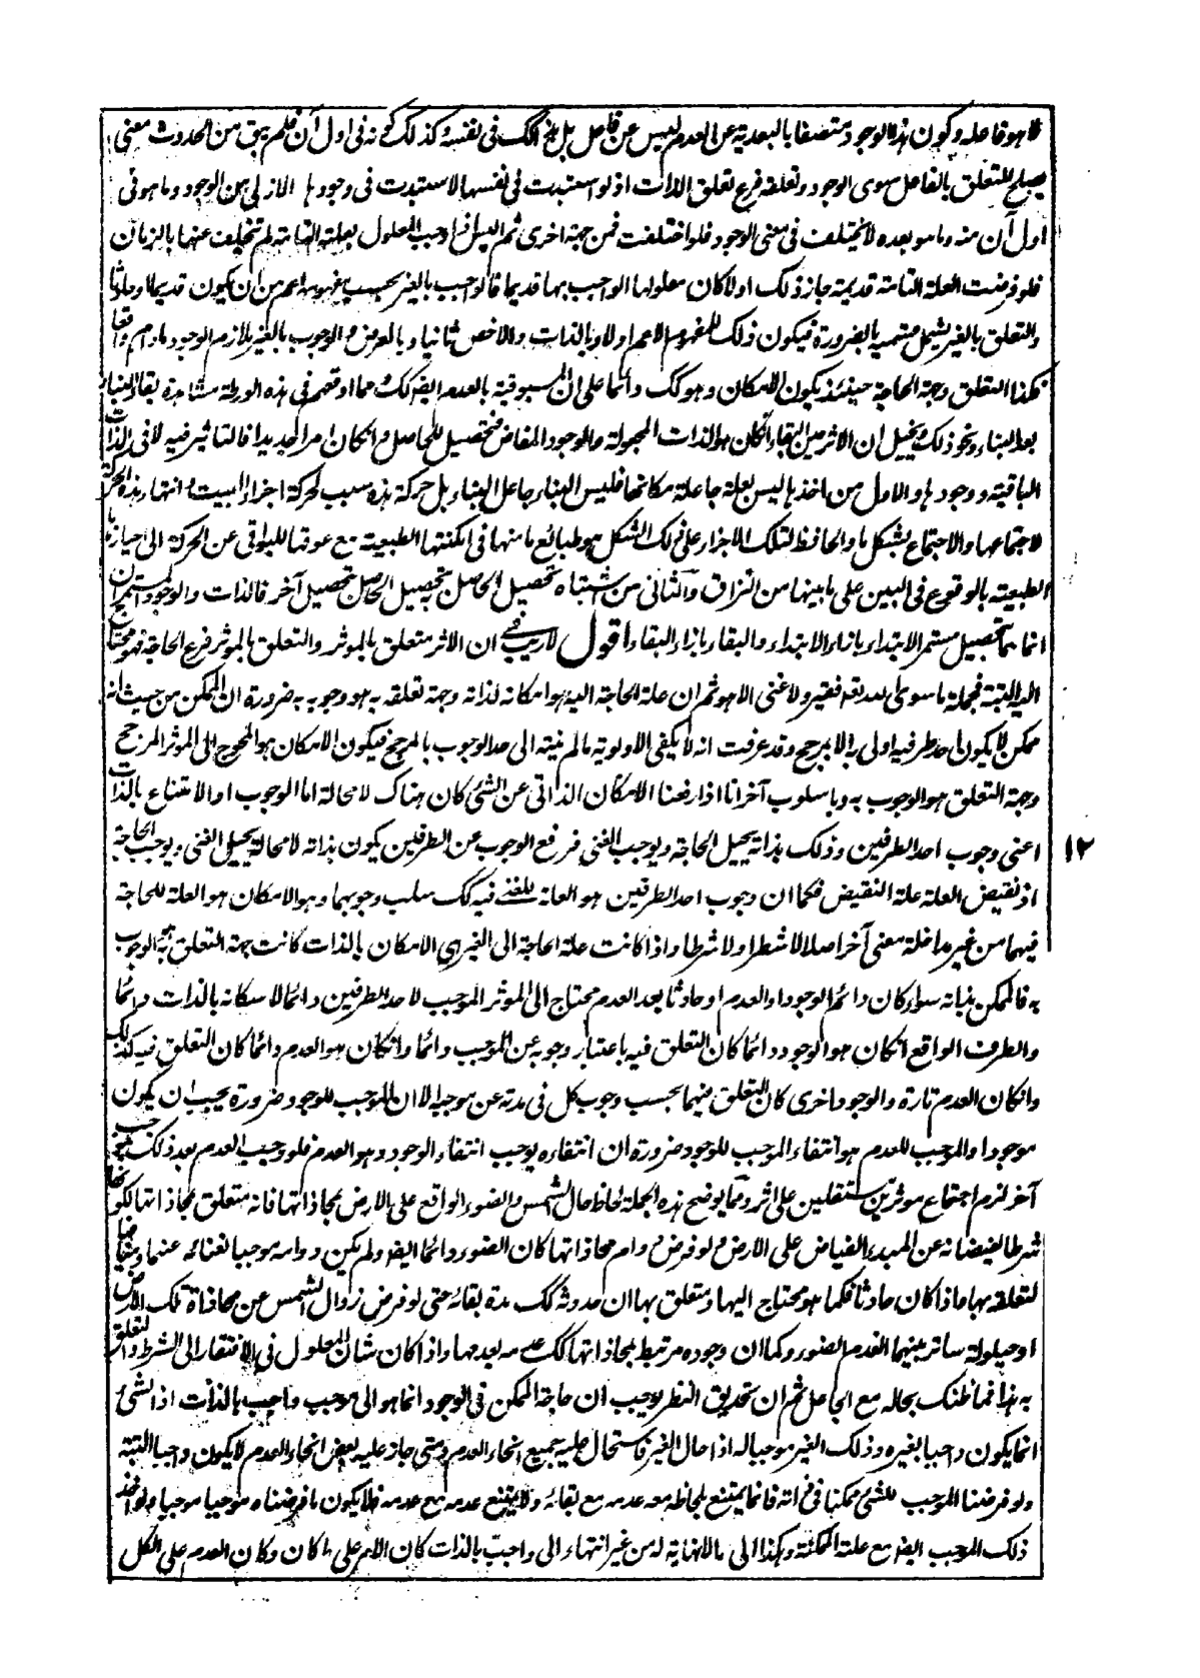 لا هو فاعله وكون هذا الوجود متصفا بالبعدية عن العدم ليس عن فاعل بل هو كك فى نفسه كذلك كونه فى اول آن فلم يبق من الحدوث معنى
يصلح للتعلق بالفاعل سوى الوجود وتعلقه فرع تعلق الذات اذ لو استبدت فى نفسها لاستبدت فى وجودها الازلى من الوجود وما هو فى
اول آن منه وما هو بعده لا يختلف فى معنى الوجود فلو اختلفت فمن جهة اخرى ثم الوجب المعلول بعلته التامة لم يتخلف عنها بالزمان
فلو فرضت العلة التامة قديمة جاز ذلك اولا كان معلولها الواجب بها قديما فالواجب بالغير بحسب مفهومه اعم من ان يكون قديما او حادثا
والتعلق بالغير يشمل قسميه بالضرورة فيكون ذلك للمفهوم الاعم اولا وبالذات وللاخص ثانيا وبالعرض والوجوب بالغير يلازم الوجود ما دام واقعا
فكذا التعلق وجهة الحاجة حينئذ يكون الامكان وهو كك دائما على ان المسبوقية بالعدم ايضا كك مما اوقعهم فى هذه الورطة مشاهدة بقاء البناء
بعد البناء ونحو ذلك وتخيل ان الاثر من البقاء ان كان هو الذات المجعولة والوجود المفاض فتحصيل للحاصل وان كان امرا جديدا فالتاثير فيه لا فى الذات
الباقية ووجودها والاول من اخذ ما ليس بعلة جاعلة مكانها فليس البناء جاعل البناء بل حركة يده سبب لحركة اجزاء البيت وانتهاء هذه الحركة
لاجتماعها والاجتماع لشكل ما والحافظ لتلك الاجزاء على ذلك الشكل هو طبائع ما منها فى امكنتها الطبيعية مع عوقها للبواقى عن الحركة الى احيازها
الطبيعية بالوقوع فى البين على ما بينها من التزاق والثانى من اشتباه تحصيل الحاصل بتحصيل الحاصل تحصيل آخر فالذات والوجود المستمران
انما هما بتحصيل مستمر الابتداء بازاء الابتداء والبقاء بازاء البقاء اقول لا ريب فى ان الاثر متعلق بالموثر والتعلق بالموثر فرع الحاجة فهو محتاج
اليه البتة فجملة ما سوى الله تعالى فقير ولا غنى الا هو ثم ان علة الحاجة اليه هو امكانه لذاته وجهة تعلقه به هو وجوبه به ضرورة ان الممكن من حيث انه
ممكن لا يكون احد طرفيه اولى به الا بمرجح وقد عرفت انه لا يكفى الاولوية ما لم ينته الى حد الوجوب بالمرجح فيكون الامكان هو المحوج الى الموثر المرجح
وجهة التعلق هو الوجوب به وباسلوب آخر انا اذا رفعنا الامكان الذاتى عن الشئ كان هناك لا محالة اما الوجوب او الامتناع بالذات
اعنى وجوب احد الطرفين وذلك بذاته يحيل الحاجة ويوجب الغنى فرفع الوجوب عن الطرفين يكون بذاته لا محالة يحيل الغنى ويوجب الحاجة
اذ نقيض العلة علة النقيض فكما ان وجوب احد الطرفين هو العلة للغنى فيه كك سلب وجوبهما وهو الامكان هو العلة للحاجة
فيهما من غير مداخلة معنى آخر اصلا لا شطرا ولا شرطا واذا كانت علة الحاجة الى الغير هى الامكان بالذات كانت جهة التعلق به هو الوجوب
به فالممكن بذاته سواء كان دائم الوجود او العدم او حادثا بعد العدم محتاج الى الموثر الموجب لاحد الطرفين دائما لامكانه بالذات دائما
والطرف الواقع ان كان هو الوجود دائما كان التعلق فيه باعتبار وجوبه عن الموجب دائما وان كان هو العدم دائما كان التعلق فيه كذلك
وان كان العدم تارة والوجود اخرى كان التعلق فيهما بحسب وجوب كل فى مدته عن موجبه الا ان الموجب للوجود ضرورة يجب ان يكون
موجودا والموجب للعدم هو انتفاء الموجب للوجود ضرورة ان انتفاءه يوجب انتفاء الوجود وهو العدم فلو وجب العدم بعد ذلك بموجب
آخر لزم اجتماع موثرين مستقلين على اثر ومما يوضح هذه الجملة لحاظ حال الشمس والضوء الواقع على الارض بمحاذاتها فانه متعلق بمحاذاتها لكونها
شرطا لفيضانه عن المبدء الفياض على الارض فلو فرض دوام محاذاتها كان الضوء دائما ايضا ولم يكن دوامه موجبا لغنائه عنها ومناقضا
لتعلقه بها فاذا كان حادثا فكما هو محتاج اليها ومتعلق بها ان حدوثه كك مدة بقائه حتى لو فرض زوال الشمس عن محاذاة تلك الارض
او حيلولة ساتر بينهما انعدم الضوء وكما ان وجوده مرتبط بمحاذاتها كك عدمه بعدمها واذا كان شان المعلول فى الافتقار الى الشرط والتعلق
به هذا فما ظنك بحاله مع الجاعل ثم ان تحديق النظر يوجب ان حاجة الممكن فى الوجود انما هو الى موجب واجب بالذات اذ الشئ
انما يكون واجبا بغيره وذلك الغير موجبا له اذا حال الغير فاستحال عليه جميع انحاء العدم ومتى جاز عليه بعض انحاء العدم لا يكون واجبا البتة
ولو فرضنا الموجب للشئ ممكنا فى ذاته فانما يمتنع بلحاظه معه عدمه مع بقائه ولا يمتنع عدمه مع عدمه فلا يكون ما فرضناه موجبا موجبا ولو اخذ
ذلك الموجب ايضا مع علته الممكنة وهكذا الى ما لا نهاية له من غير انتهاء الى واجب بالذات كان الامر على ما كان وكان العدم على الكل
١٢